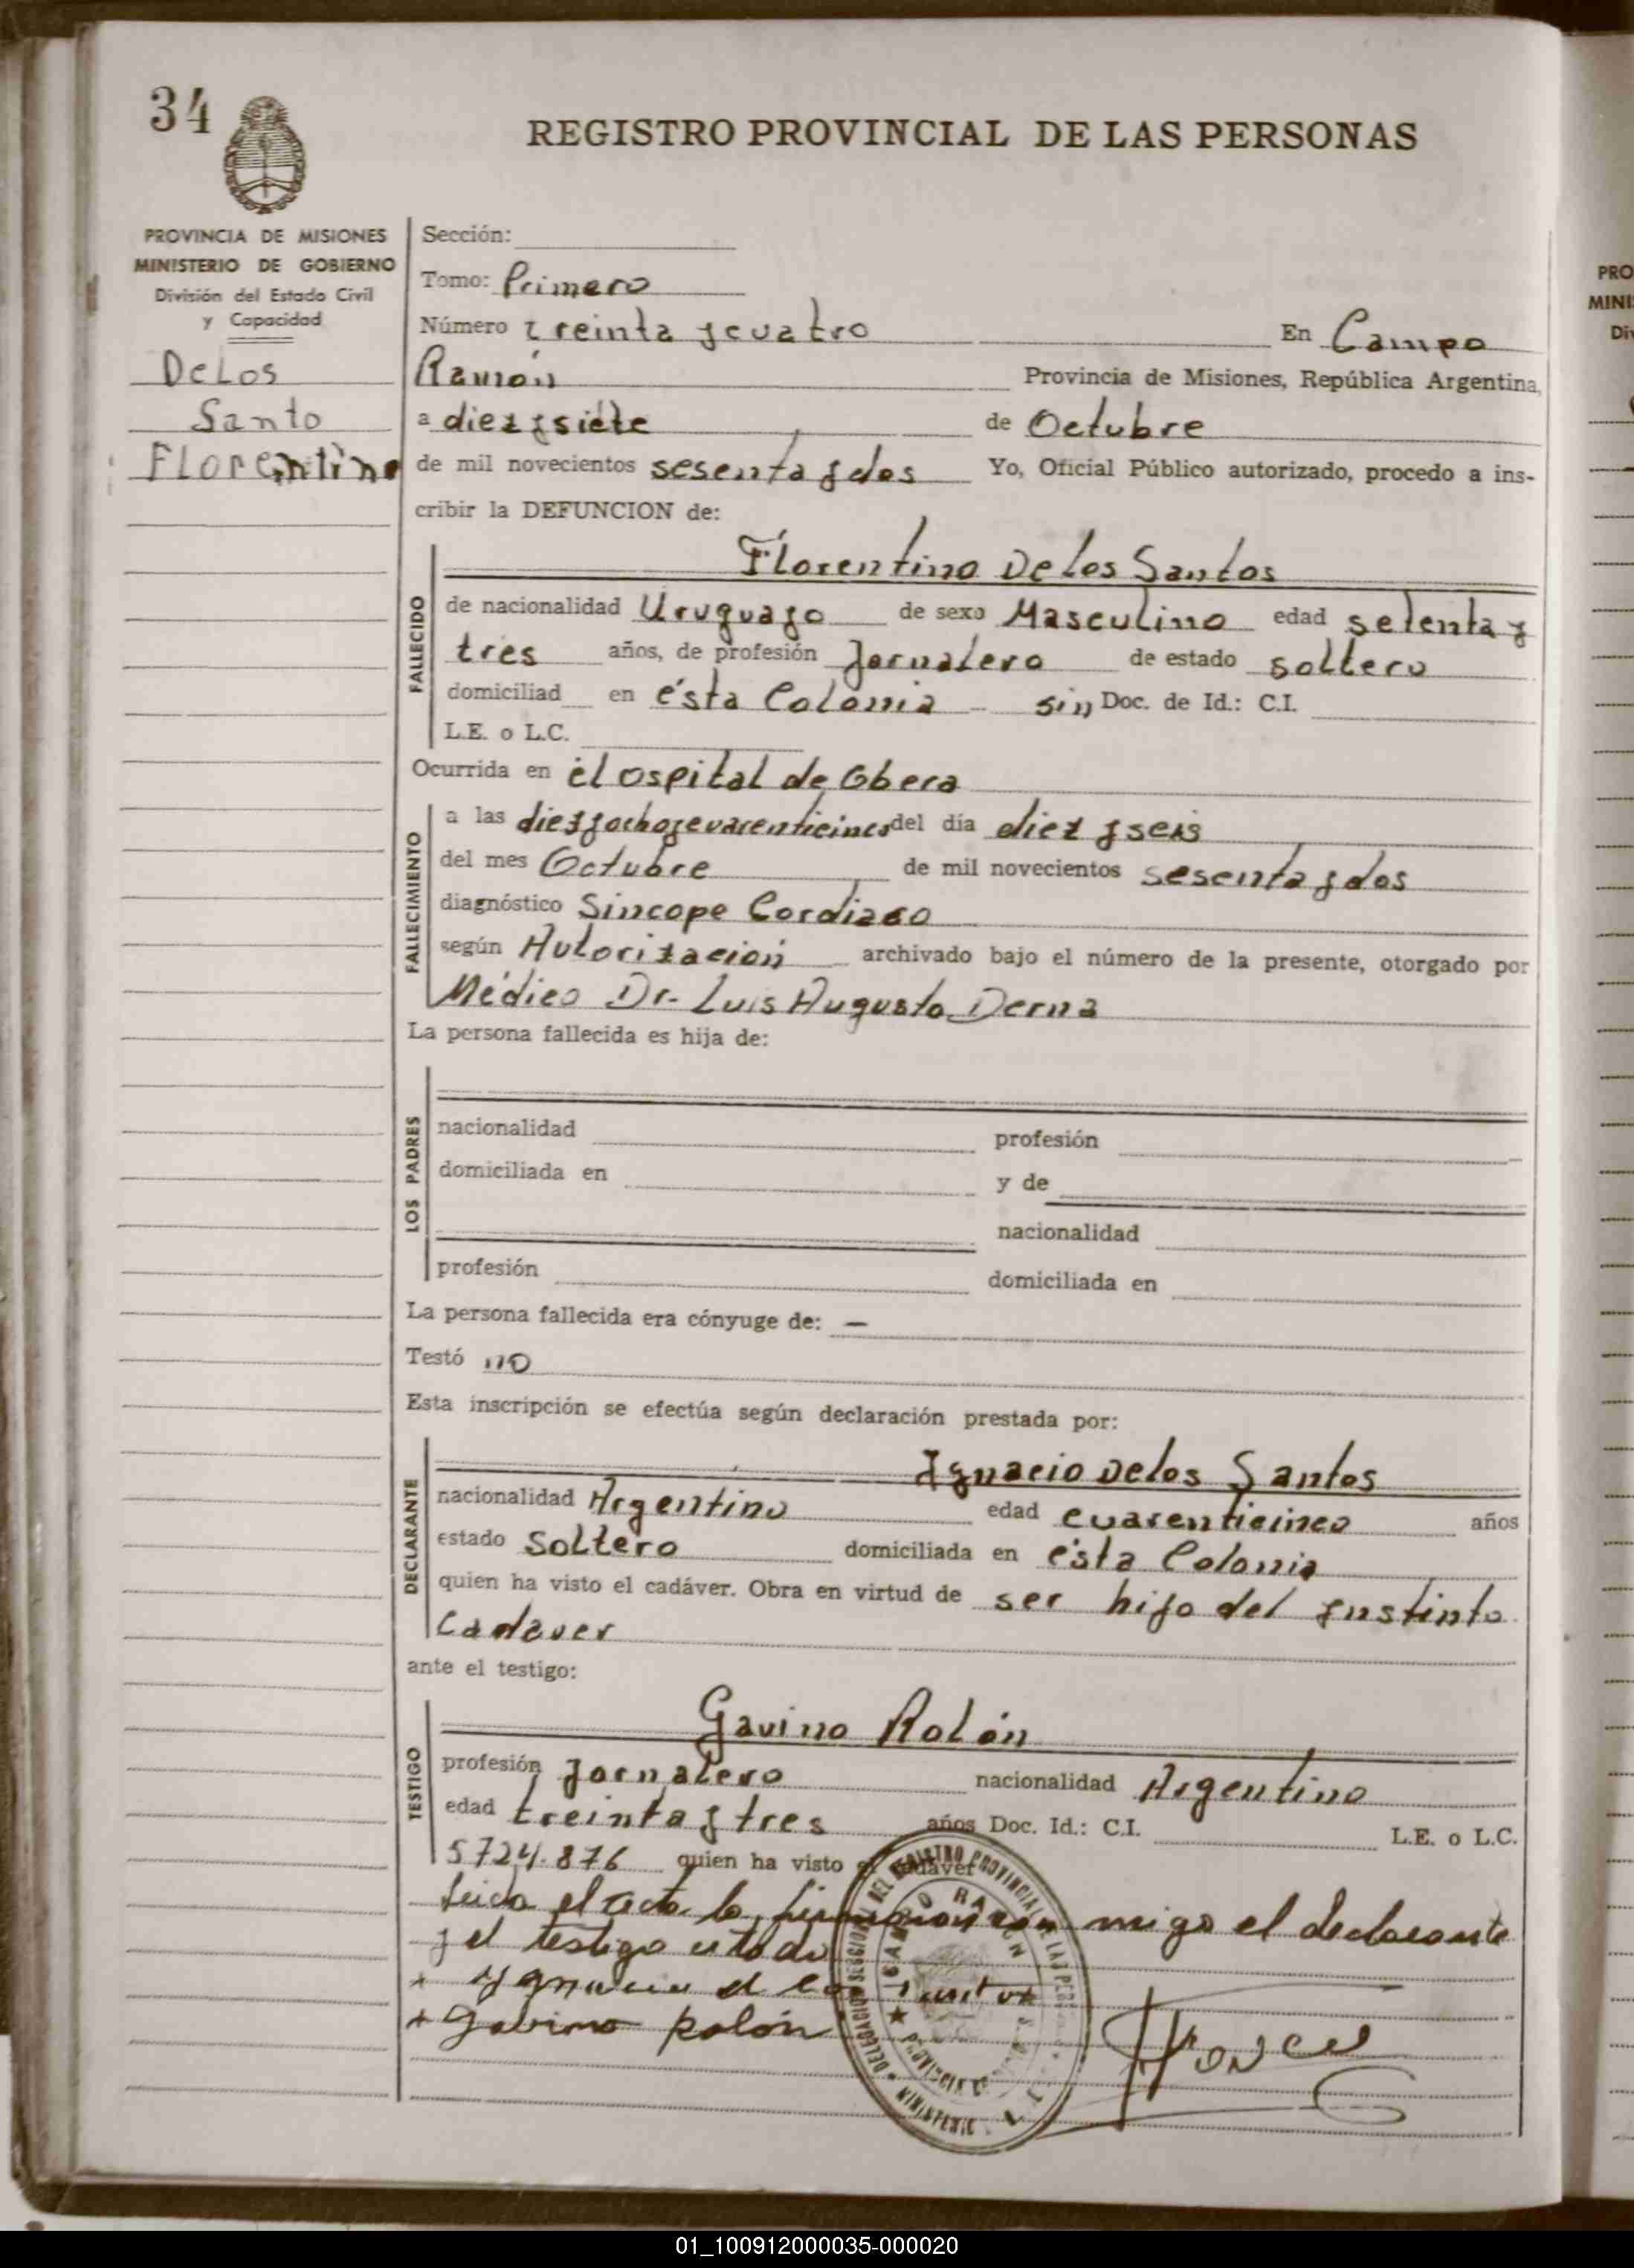 34
REGISTRO PROVINCIAL DE LAS PERSONAS
PROVINCIA DE MISIONES
MINISTERIO DE GOBIERNO
División del Estado Civil
y Capacidad
DeLos
Santo
Florentino
Sección:
Tomo: Primero
Número treinta y cuatro En Campo
Ramón Provincia de Misiones, República Argentina,
a diez y siete de Octubre
de mil novecientos sesenta y dos Yo, Oficial Público autorizado, procedo a ins-
cribir la DEFUNCION de:
Florentino De los Santos
FALLECIDO
de nacionalidad Uruguayo de sexo Masculino edad setenta y
tres años, de profesión Jornalero de estado soltero
domiciliad en ésta Colonia - sin Doc. de Id.: C.I.
L.E. o L.C.
Ocurrida en el Ospital de Obera
FALLECIMIENTO
a las diez y ocho y cuarenticinco del día diez y seis
del mes Octubre de mil novecientos sesenta y dos
diagnóstico Sincope Cordiaco
según Autorización archivado bajo el número de la presente, otorgado por
Médico Dr. Luis Augusto Derna
La persona fallecida es hija de:
LOS PADRES
nacionalidad profesión
domiciliada en y de
nacionalidad
profesión domiciliada en
La persona fallecida era cónyuge de: —
Testó no
Esta inscripción se efectúa según declaración prestada por:
DECLARANTE
Ignacio De los Santos
nacionalidad Argentino edad cuarenticinco años
estado Soltero domiciliada en ésta Colonia
quien ha visto el cadáver. Obra en virtud de ser hijo del ynstinto
Cadaver
ante el testigo:
TESTIGO
Gavino Rolón
profesión Jornalero nacionalidad Argentino
edad treinta y tres años Doc. Id.: C.I. L.E. o L.C.
5724.876 quien ha visto el cadáver
Leida el acta la firmaron con migo el declarante
y el testigo citado
+ Ygnacio de los Santos
+ Gabino Rolón
CAMPO RAMON
PRO
MINI
Div
01_100912000035-000020